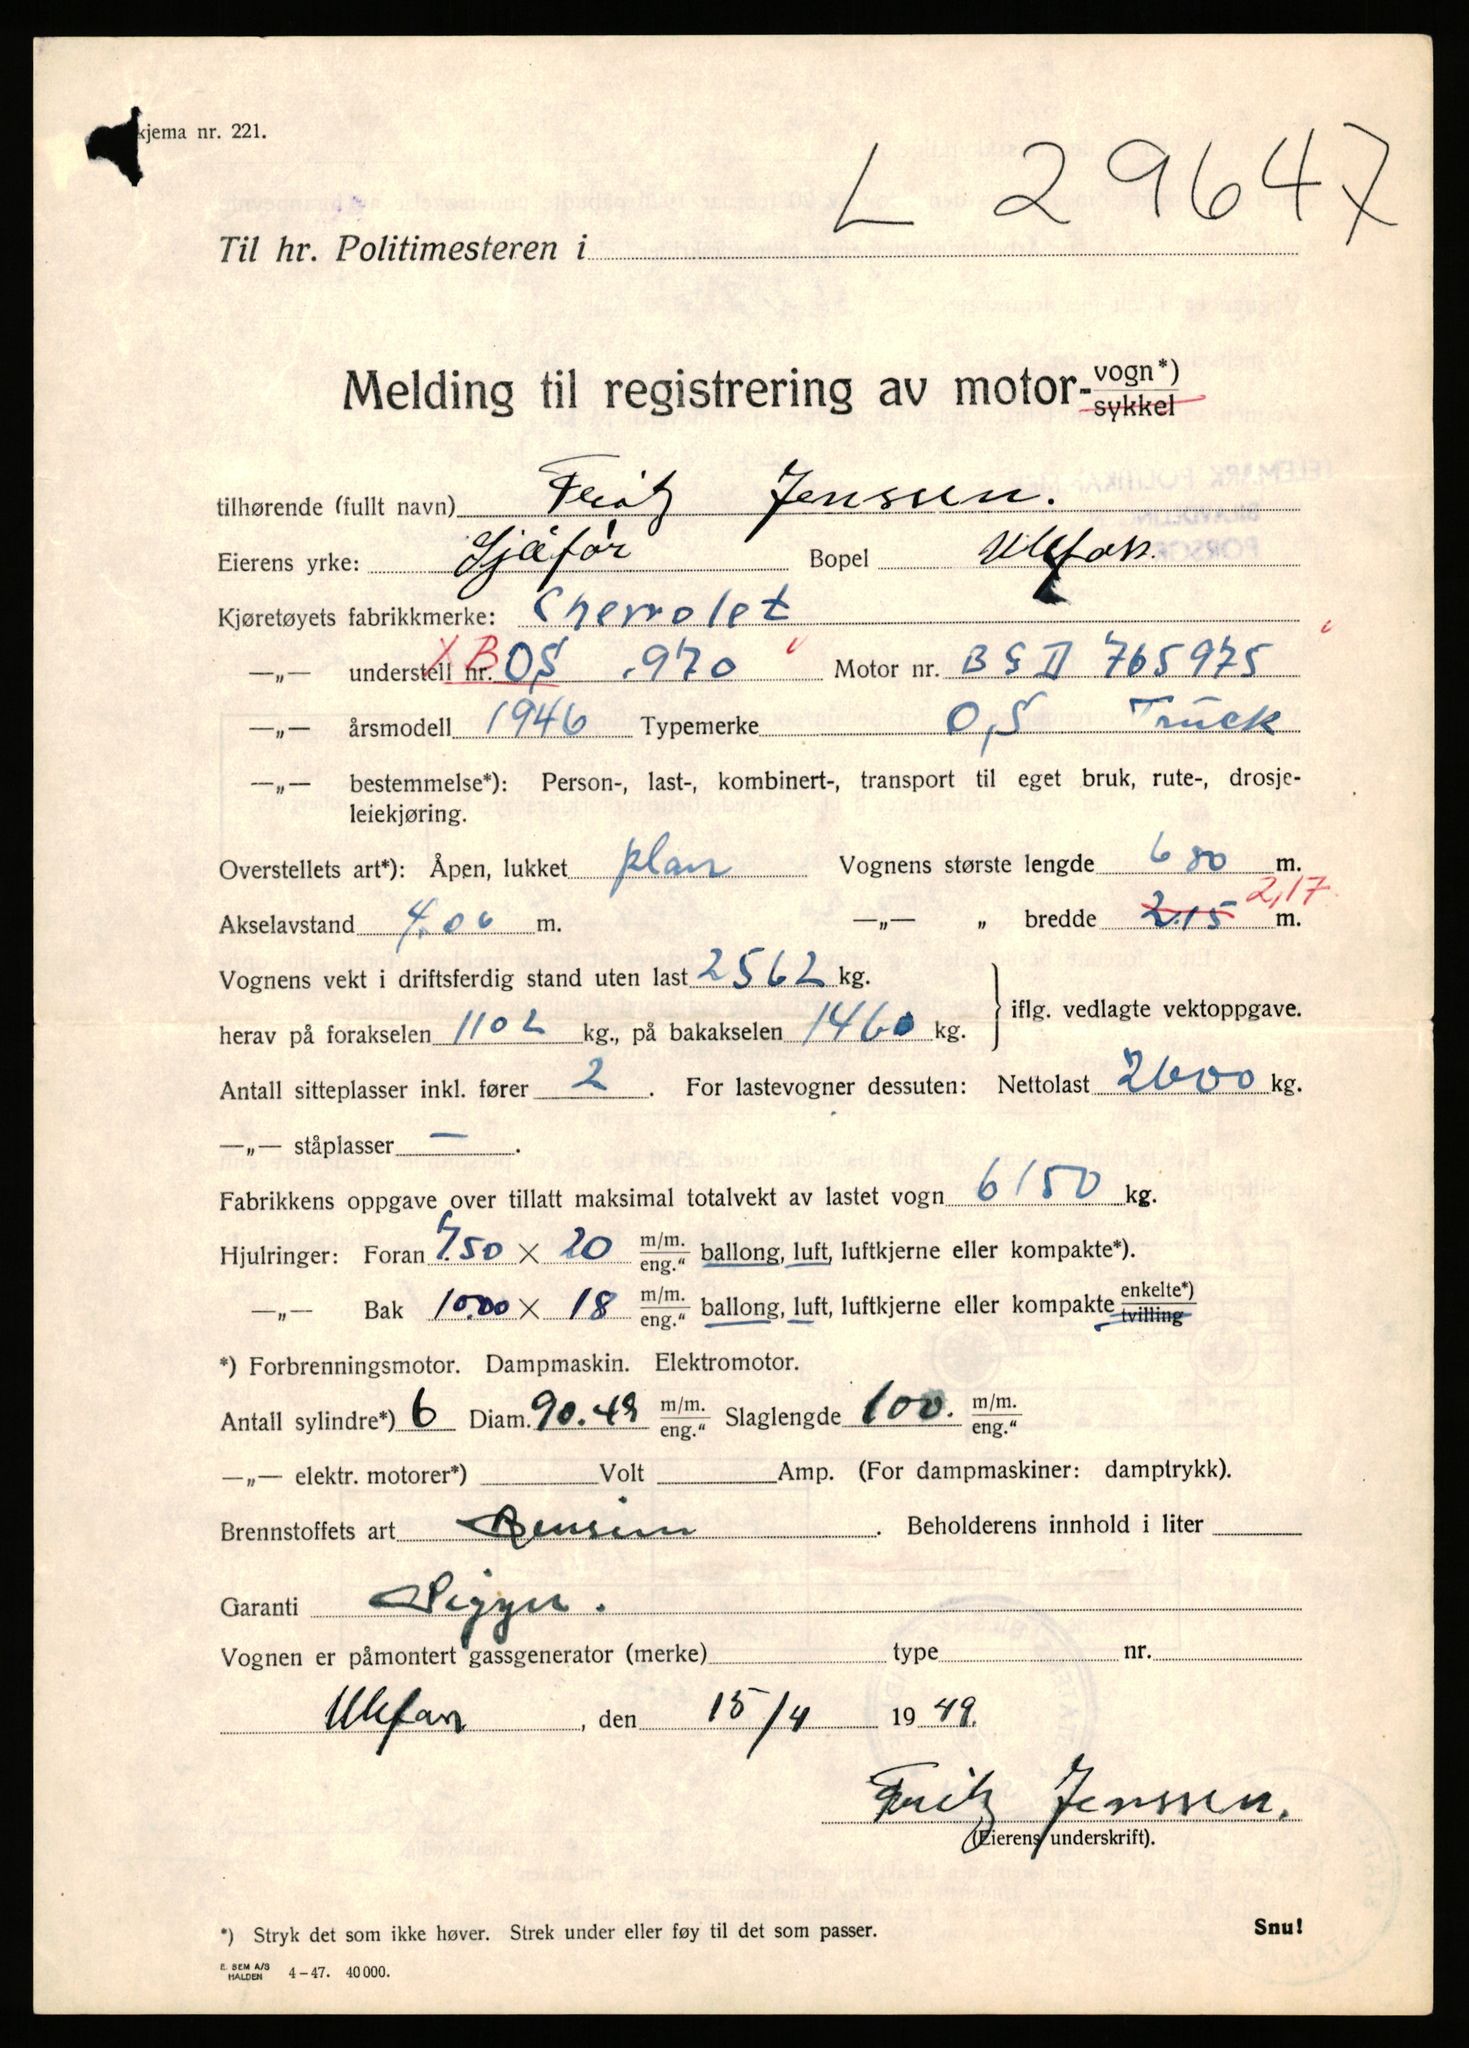 kjema nr. 221.
L 29647
Til hr. Politimesteren i
Melding til registrering av motor-vogn*)
sykkel
tilhørende (fullt navn) Fritz Jenssen.
Eierens yrke: Sjåfør Bopel Ulefoss.
Kjøretøyets fabrikkmerke: Chevrolet
—„— understell nr. XB OS .970 Motor nr. BSII 765975
—„— årsmodell 1946 Typemerke O,S Truck
—„— bestemmelse*): Person-, last-, kombinert-, transport til eget bruk, rute-, drosje-
leiekjøring.
Overstellets art*): Åpen, lukket plan Vognens største lengde 6 80 m.
Akselavstand 4.06 m. —„— „ bredde 2.15 2,17 m.
Vognens vekt i driftsferdig stand uten last 2562 kg.
herav på forakselen 1102 kg., på bakakselen 1460 kg. iflg. vedlagte vektoppgave.
Antall sitteplasser inkl. fører 2. For lastevogner dessuten: Nettolast 2600 kg.
—„— ståplasser —.
Fabrikkens oppgave over tillatt maksimal totalvekt av lastet vogn 6150 kg.
Hjulringer: Foran 7.50 × 20 m/m. eng.“ ballong, luft, luftkjerne eller kompakte*).
—„— Bak 10.00 × 18 m/m. eng.“ ballong, luft, luftkjerne eller kompakte enkelte*) tvilling
*) Forbrenningsmotor. Dampmaskin. Elektromotor.
Antall sylindre*) 6 Diam. 90.49 m/m. eng.“ Slaglengde 100. m/m. eng.“
—„— elektr. motorer*) Volt Amp. (For dampmaskiner: damptrykk).
Brennstoffets art Bensin. Beholderens innhold i liter
Garanti Sigyn.
Vognen er påmontert gassgenerator (merke) type nr.
Ulefoss, den 15/4 1949.
Fritz Jenssen.
(Eierens underskrift).
*) Stryk det som ikke høver. Strek under eller føy til det som passer.
Snu!
E. SEM A/S
HALDEN 4–47. 40 000.